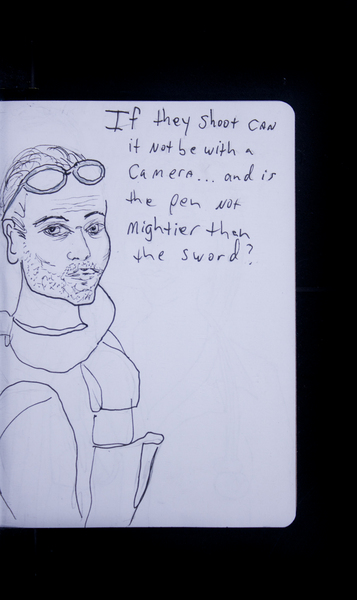 If they shoot can
it not be with a
Camera... and is
the pen not
mightier then
the sword?